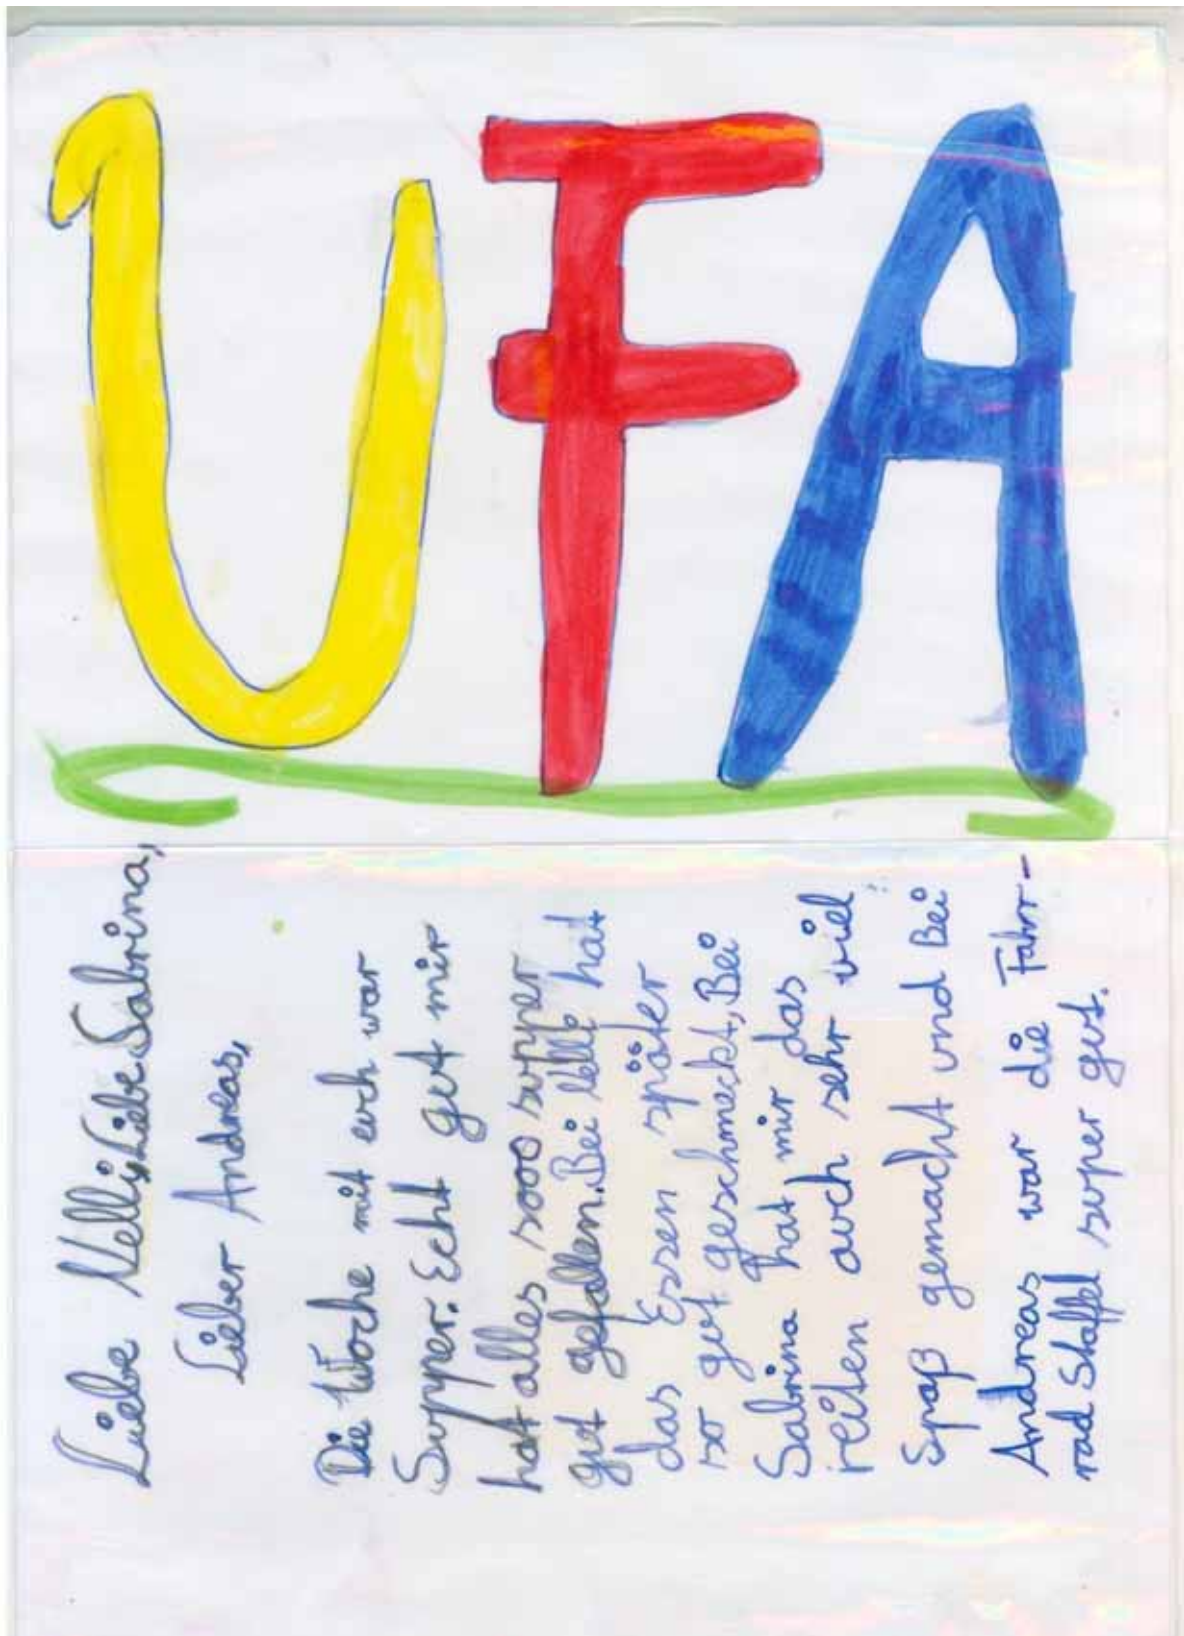 UFA
Liebe Nelli, Liebe Sabrina,
Lieber Andreas,
Die Woche mit euch war
Supper. Echt gut mir
hat alles sooo supper
gut gefallen. Bei Nelli hat
das Essen später
so gut geschmeckt, Bei
Sabrina hat mir das
reiten auch sehr viel
Spaß gemacht und Bei
Andreas war die Fahr-
rad Staffel super gut.